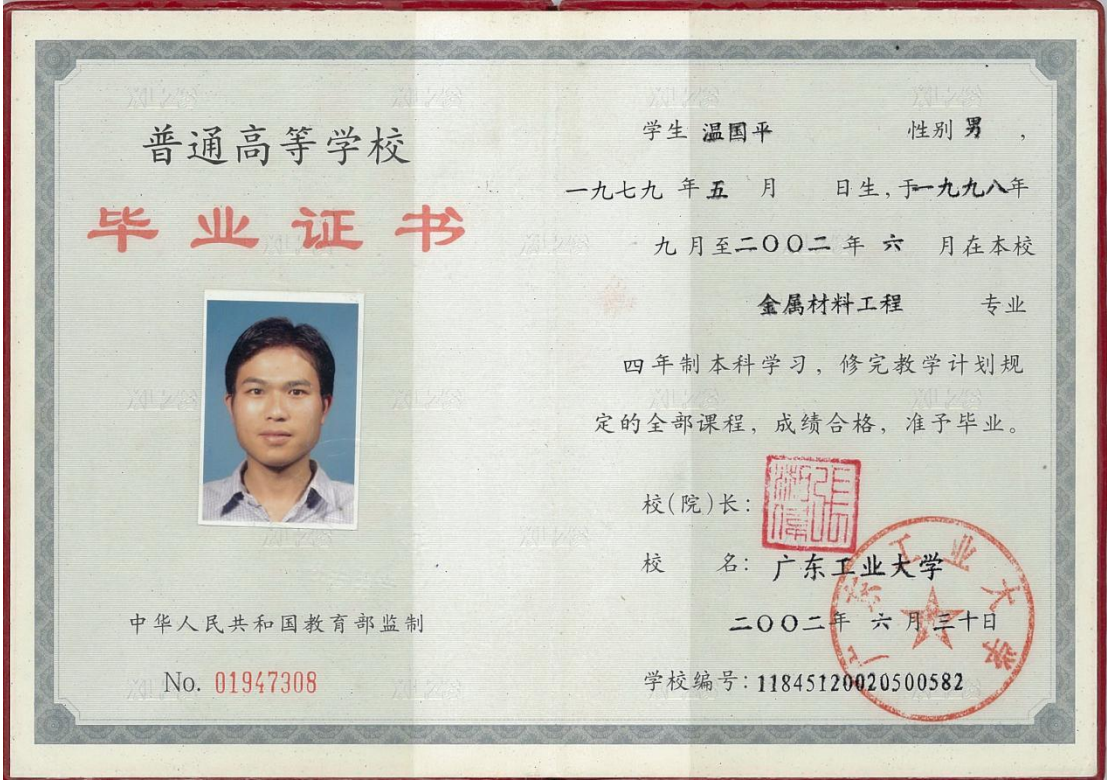 普通高等学校
毕业证书
中华人民共和国教育部监制
No. 01947308
学生 温国平 性别 男 ,
一九七九 年 五 月 日生, 于一九九八年
九 月至二〇〇二 年 六 月在本校
金属材料工程 专业
四年制本科学习, 修完教学计划规
定的全部课程, 成绩合格, 准予毕业。
校(院)长:
校 名: 广东工业大学
二〇〇二年 六 月三十日
学校编号: 11845120020500582
广东工业大学